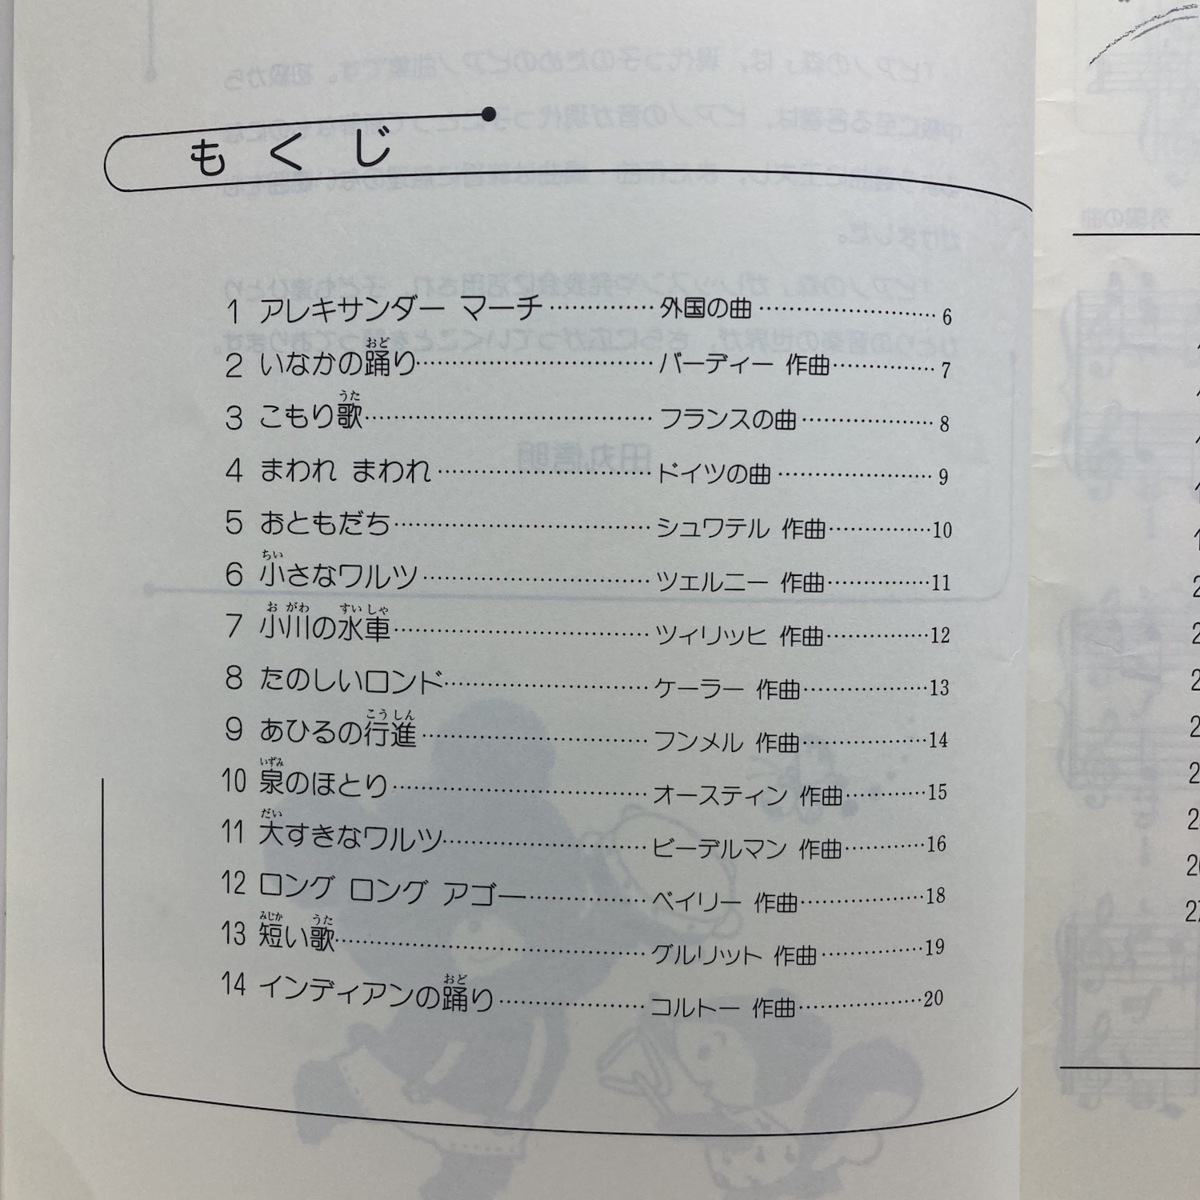 もくじ
1 アレキサンダー マーチ …… 外国の曲 …… 6
2 いなかの踊り …… バーディー 作曲 …… 7
3 こもり歌 …… フランスの曲 …… 8
4 まわれ まわれ …… ドイツの曲 …… 9
5 おともだち …… シュワテル 作曲 …… 10
6 小さなワルツ …… ツェルニー 作曲 …… 11
7 小川の水車 …… ツィリッヒ 作曲 …… 12
8 たのしいロンド …… ケーラー 作曲 …… 13
9 あひるの行進 …… フンメル 作曲 …… 14
10 泉のほとり …… オースティン 作曲 …… 15
11 大すきなワルツ …… ビーデルマン 作曲 …… 16
12 ロング ロング アゴー …… ベイリー 作曲 …… 18
13 短い歌 …… グルリット 作曲 …… 19
14 インディアンの踊り …… コルトー 作曲 …… 20